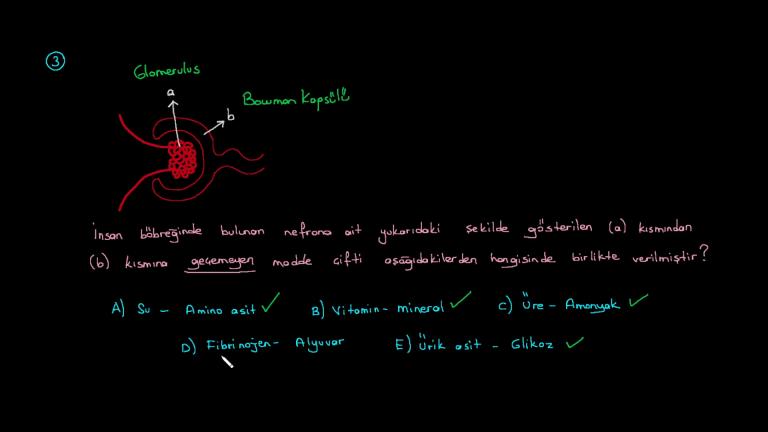 3
Glomerulus
a
Bowman Kapsülü
b
İnsan böbreğinde bulunan nefrona ait yukarıdaki şekilde gösterilen (a) kısmından
(b) kısmına geçemeyen madde çifti aşağıdakilerden hangisinde birlikte verilmiştir?
A) Su - Amino asit B) Vitamin - mineral C) Üre - Amonyak
D) Fibrinojen - Alyuvar E) Ürik asit - Glikoz